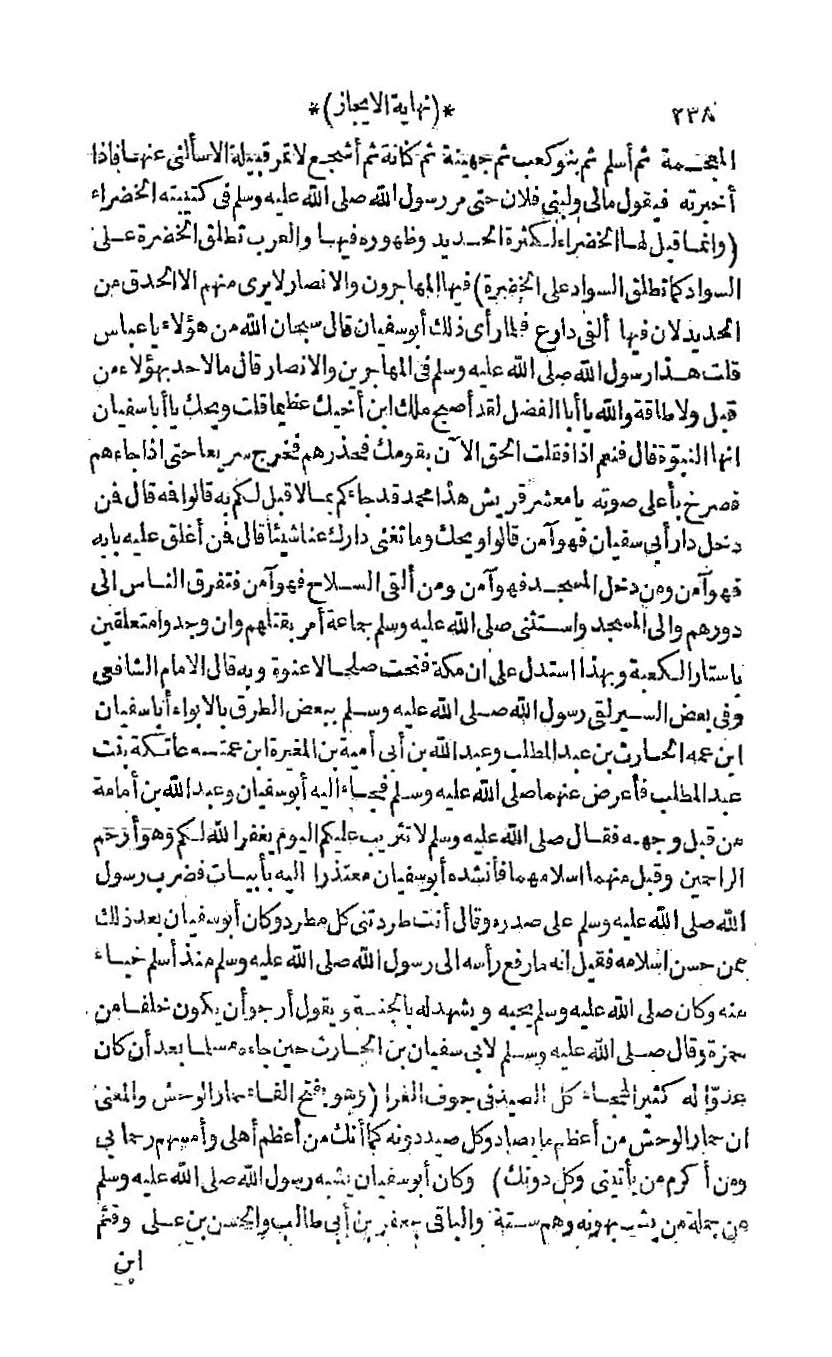 ٢٣٨
*(نهاية الايجاز)*
المعجمة ثم أسلم ثم بنو كعب ثم جهينة ثم كنانة ثم أشجع لا تمر قبيلة الا سألنى عنها فاذا
أخبرته فيقول مالى ولبنى فلان حتى مر رسول الله صلى الله عليه وسلم فى كتيبته الخضراء
(وانما قيل لها الخضراء لكثرة الحديد وظهوره فيها والعرب تطلق الخضرة على
السواد كما تطلق السواد على الخضرة) فيها المهاجرون والانصار لا يرى منهم الا الحدق من
الحديد لان فيها ألفى دارع فلما رأى ذلك أبو سفيان قال سبحان الله من هؤلاء يا عباس
قلت هذا رسول الله صلى الله عليه وسلم فى المهاجرين والانصار قال مالاحد بهؤلاء من
قبل ولا طاقة والله يا أبا الفضل لقد أصبح ملك ابن أخيك عظيما قلت ويحك يا أبا سفيان
انها النبوّة قال فنعم اذا فقلت الحق الآن بقومك فحذرهم فخرج سريعا حتى اذا جاءهم
فصرخ بأعلى صوته يا معشر قريش هذا محمد قد جاءكم بمالا قبل لكم به قالوا فمه قال فمن
دخل دار أبى سفيان فهو آمن قالوا ويحك وما تغنى دارك عنا شيئا قال فمن أغلق عليه بابه
فهو آمن ومن دخل المسجد فهو آمن ومن ألقى السلاح فهو آمن فتفرق الناس الى
دورهم والى المسجد واستثنى صلى الله عليه وسلم جماعة أمر بقتلهم وان وجدوا متعلقين
باستار الكعبة وبهذا استدل على ان مكة فتحت صلحا لا عنوة وبه قال الامام الشافعى
وفى بعض السير لقى رسول الله صلى الله عليه وسلم ببعض الطرق بالابواء أبا سفيان
ابن عمه الحارث بن عبد المطلب وعبد الله بن أبى أمية بن المغيرة ابن عمته عاتكة بنت
عبد المطلب فأعرض عنهما صلى الله عليه وسلم فجاء اليه أبو سفيان وعبد الله بن أمامة
من قبل وجهه فقال صلى الله عليه وسلم لا تثريب عليكم اليوم يغفر الله لكم وهو أرحم
الراحمين وقبل منهما اسلامهما فأنشده أبو سفيان معتذرا اليه بأبيات فضرب رسول
الله صلى الله عليه وسلم على صدره وقال أنت طردتنى كل مطرد وكان أبو سفيان بعد ذلك
ممن حسن اسلامه فقيل انه مارفع رأسه الى رسول الله صلى الله عليه وسلم منذ أسلم حياء
منه وكان صلى الله عليه وسلم يحبه ويشهد له بالجنة ويقول أرجو أن يكون خلفا من
حمزة وقال صلى الله عليه وسلم لابى سفيان بن الحارث حين جاءه مسلما بعد أن كان
عدوّا له كثير الهجاء كل الصيد فى جوف الفرا (وهو بفتح الفاء حمار الوحش والمعنى
ان حمار الوحش من أعظم ما يصاد وكل صيد دونه كما أنك من أعظم أهلى وأمسهم رحما بى
ومن أكرم من يأتينى وكل دونك) وكان أبو سفيان يشبه رسول الله صلى الله عليه وسلم
من جملة من يشبهونه وهم ستة والباقى جعفر بن أبى طالب والحسن بن على وقثم
ابن